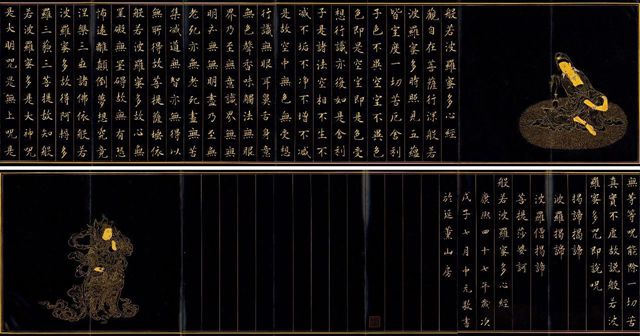 般若波羅蜜多心經
觀自在菩薩行深般若
波羅蜜多時照見五蘊
皆空度一切苦厄舍利
子色不異空空不異色
色即是空空即是色受
想行識亦復如是舍利
子是諸法空相不生不
滅不垢不淨不增不減
是故空中無色無受想
行識無眼耳鼻舌身意
無色聲香味觸法無眼
界乃至無意識界無無
明亦無無明盡乃至無
老死亦無老死盡無苦
集滅道無智亦無得以
無所得故菩提薩埵依
般若波羅蜜多故心無
罣礙無罣礙故無有恐
怖遠離顛倒夢想究竟
涅槃三世諸佛依般若
波羅蜜多故得阿耨多
羅三藐三菩提故知般
若波羅蜜多是大神呪
是大明呪是無上呪是
無等等呪能除一切苦
真實不虛故說般若波
羅蜜多呪即說呪
揭諦揭諦
波羅揭諦
波羅僧揭諦
菩提莎婆訶
般若波羅蜜多心經
康熙四十七年歲次
戊子七月中元敬書
於延薰山房